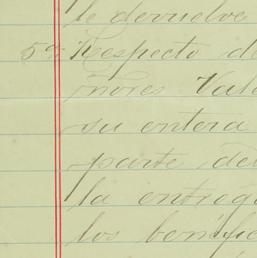 le devuelve
5ª Respecto de
nores Val
su entera
parte de
la entrega
los benefi